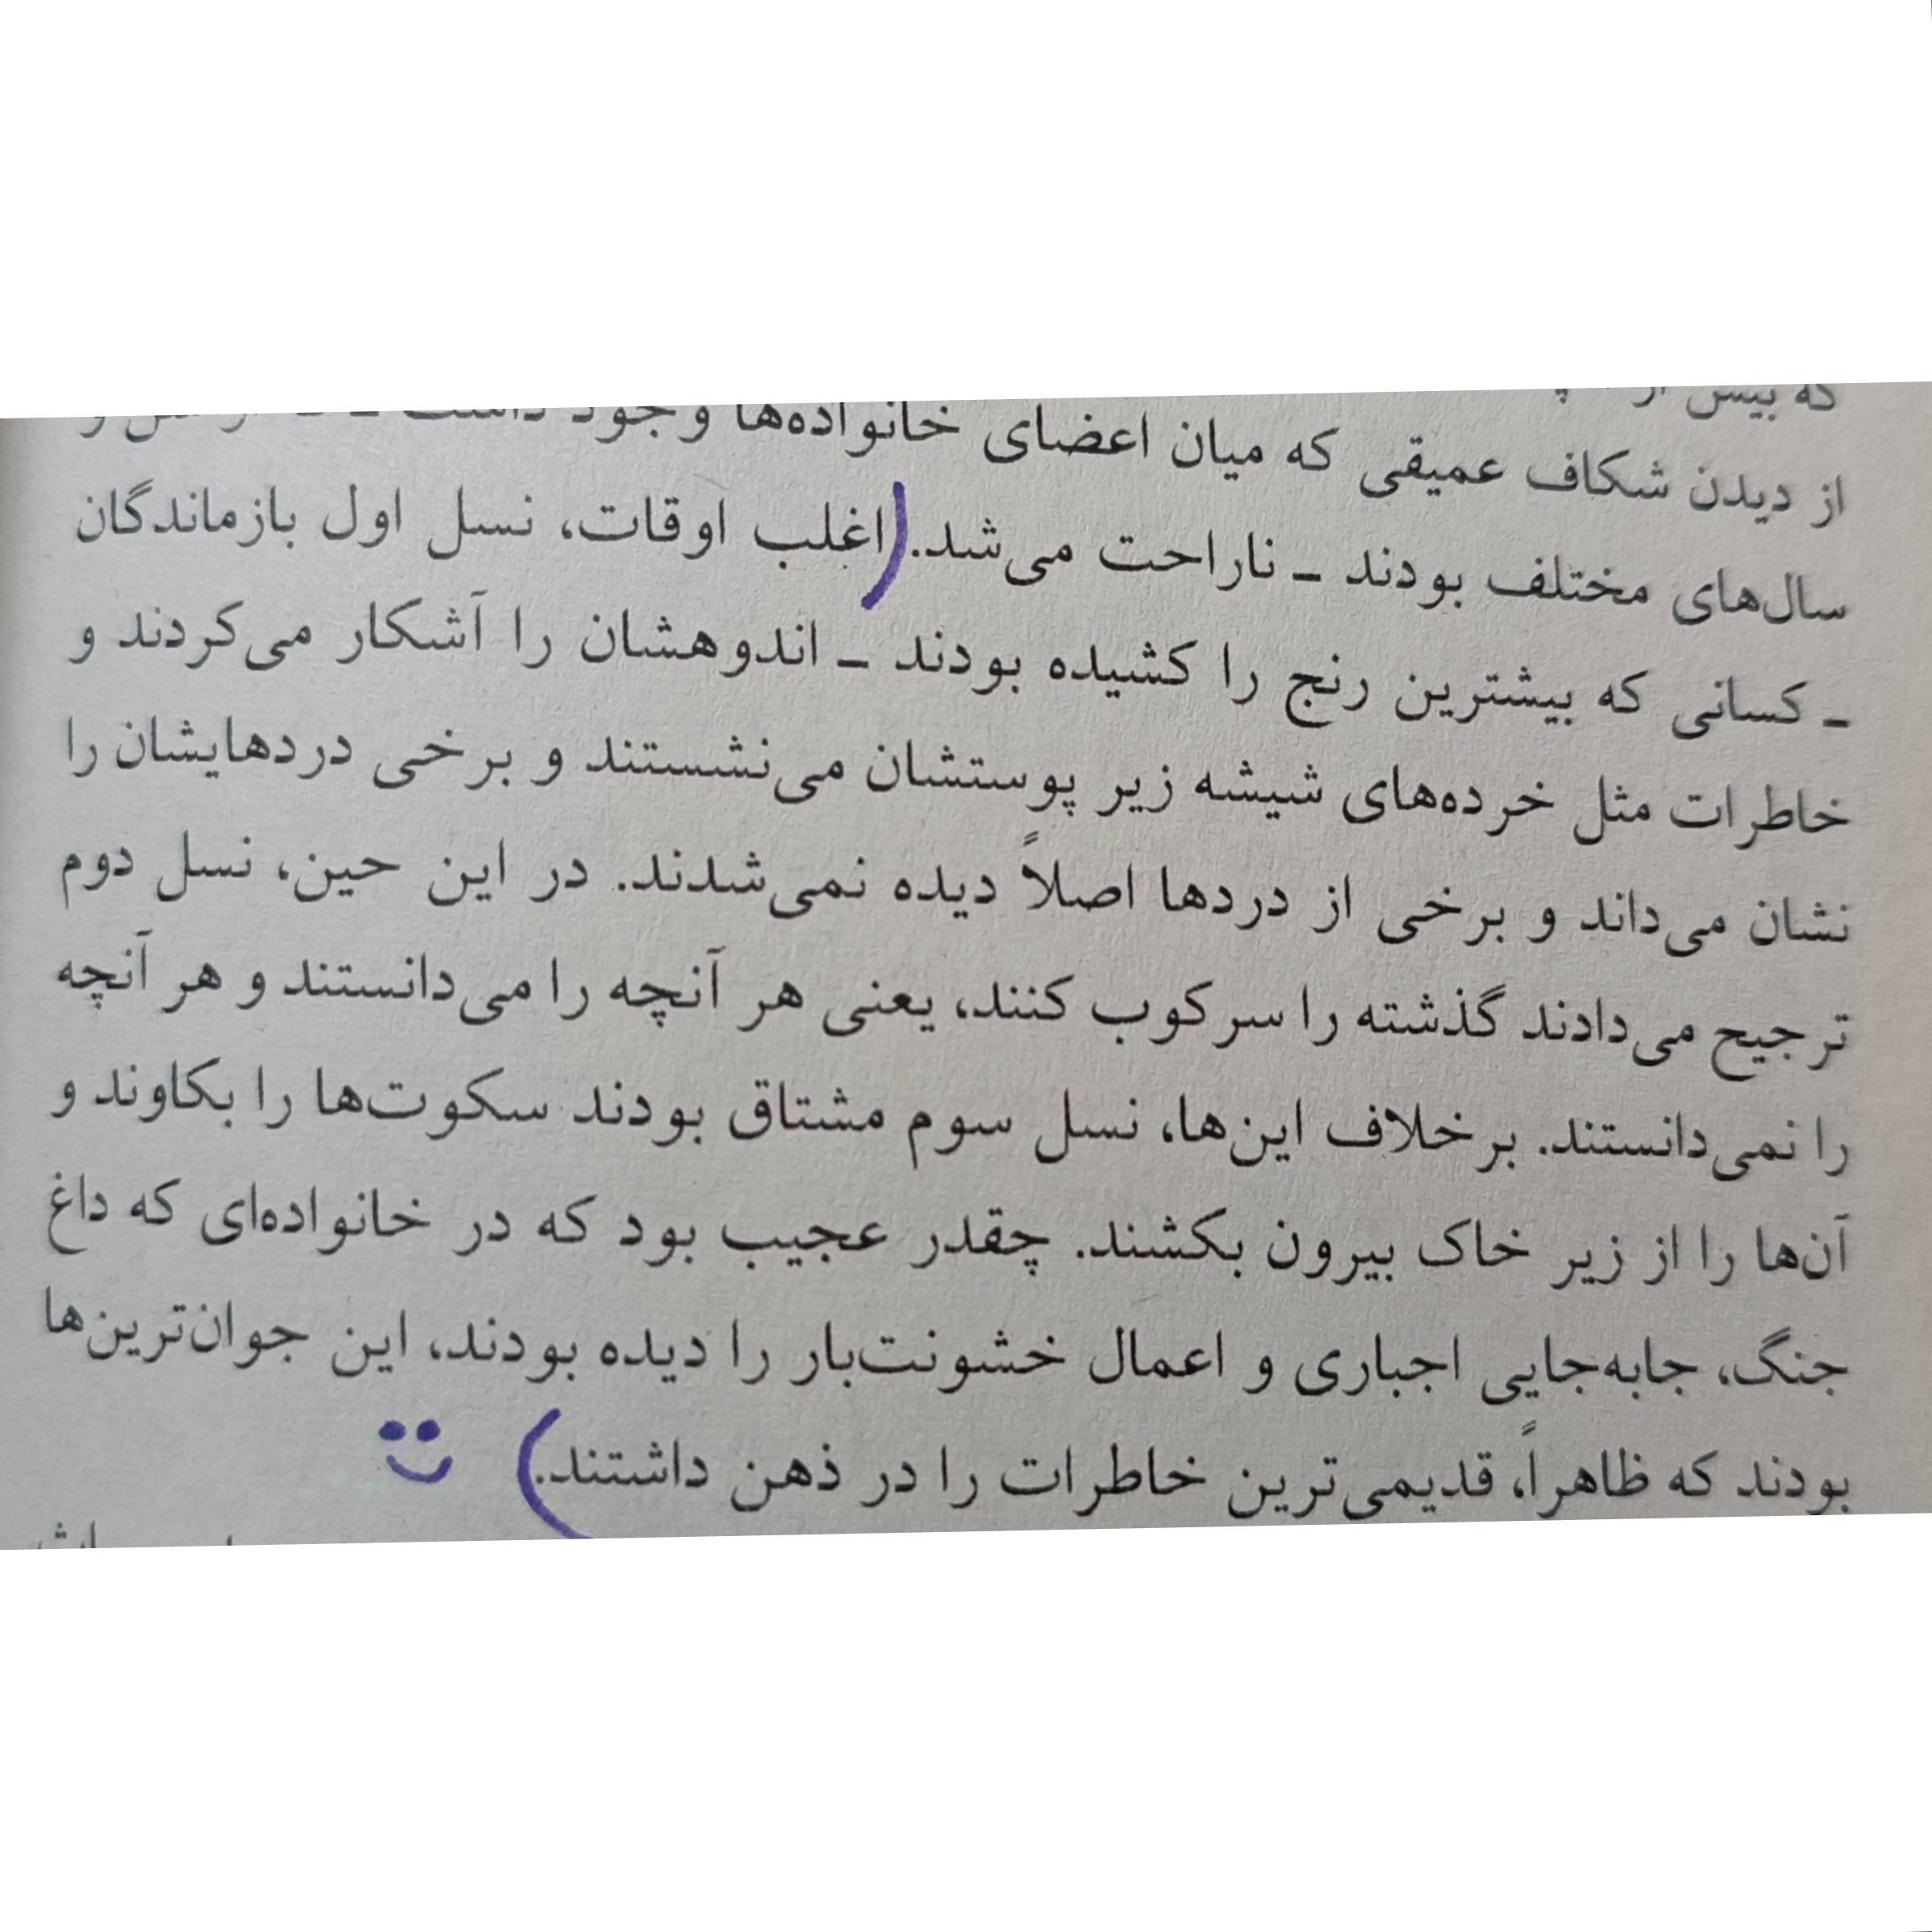 که بیش از
از دیدن شکاف عمیقی که میان اعضای خانواده‌ها وجود داشت ـ
سال‌های مختلف بودند ـ ناراحت می‌شد. (اغلب اوقات، نسل اول بازماندگان
ـ کسانی که بیشترین رنج را کشیده بودند ـ اندوهشان را آشکار می‌کردند و
خاطرات مثل خرده‌های شیشه زیر پوستشان می‌نشستند و برخی دردهایشان را
نشان می‌داند و برخی از دردها اصلاً دیده نمی‌شدند. در این حین، نسل دوم
ترجیح می‌دادند گذشته را سرکوب کنند، یعنی هر آنچه را می‌دانستند و هر آنچه
را نمی‌دانستند. برخلاف این‌ها، نسل سوم مشتاق بودند سکوت‌ها را بکاوند و
آن‌ها را از زیر خاک بیرون بکشند. چقدر عجیب بود که در خانواده‌ای که داغ
جنگ، جابه‌جایی اجباری و اعمال خشونت‌بار را دیده بودند، این جوان‌ترین‌ها
بودند که ظاهراً، قدیمی‌ترین خاطرات را در ذهن داشتند.)